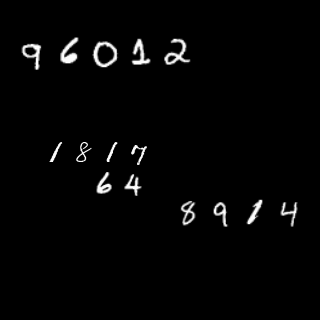 96012
1817
64
8914